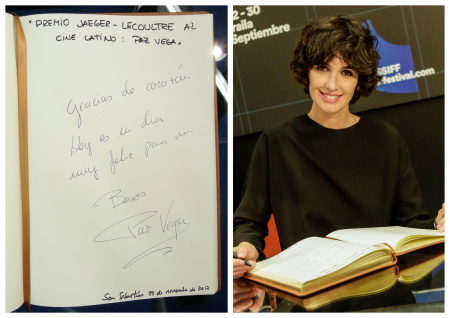 "PREMIO JAEGER-LECOULTRE AL
CINE LATINO: PAZ VEGA.
Gracias de corazón
Hoy es un dia
muy feliz para mi.
Besos
Paz Vega
San Sebastián 29 de 2017
2 - 30
Iraila
Septiembre
SSIFF
festival.com